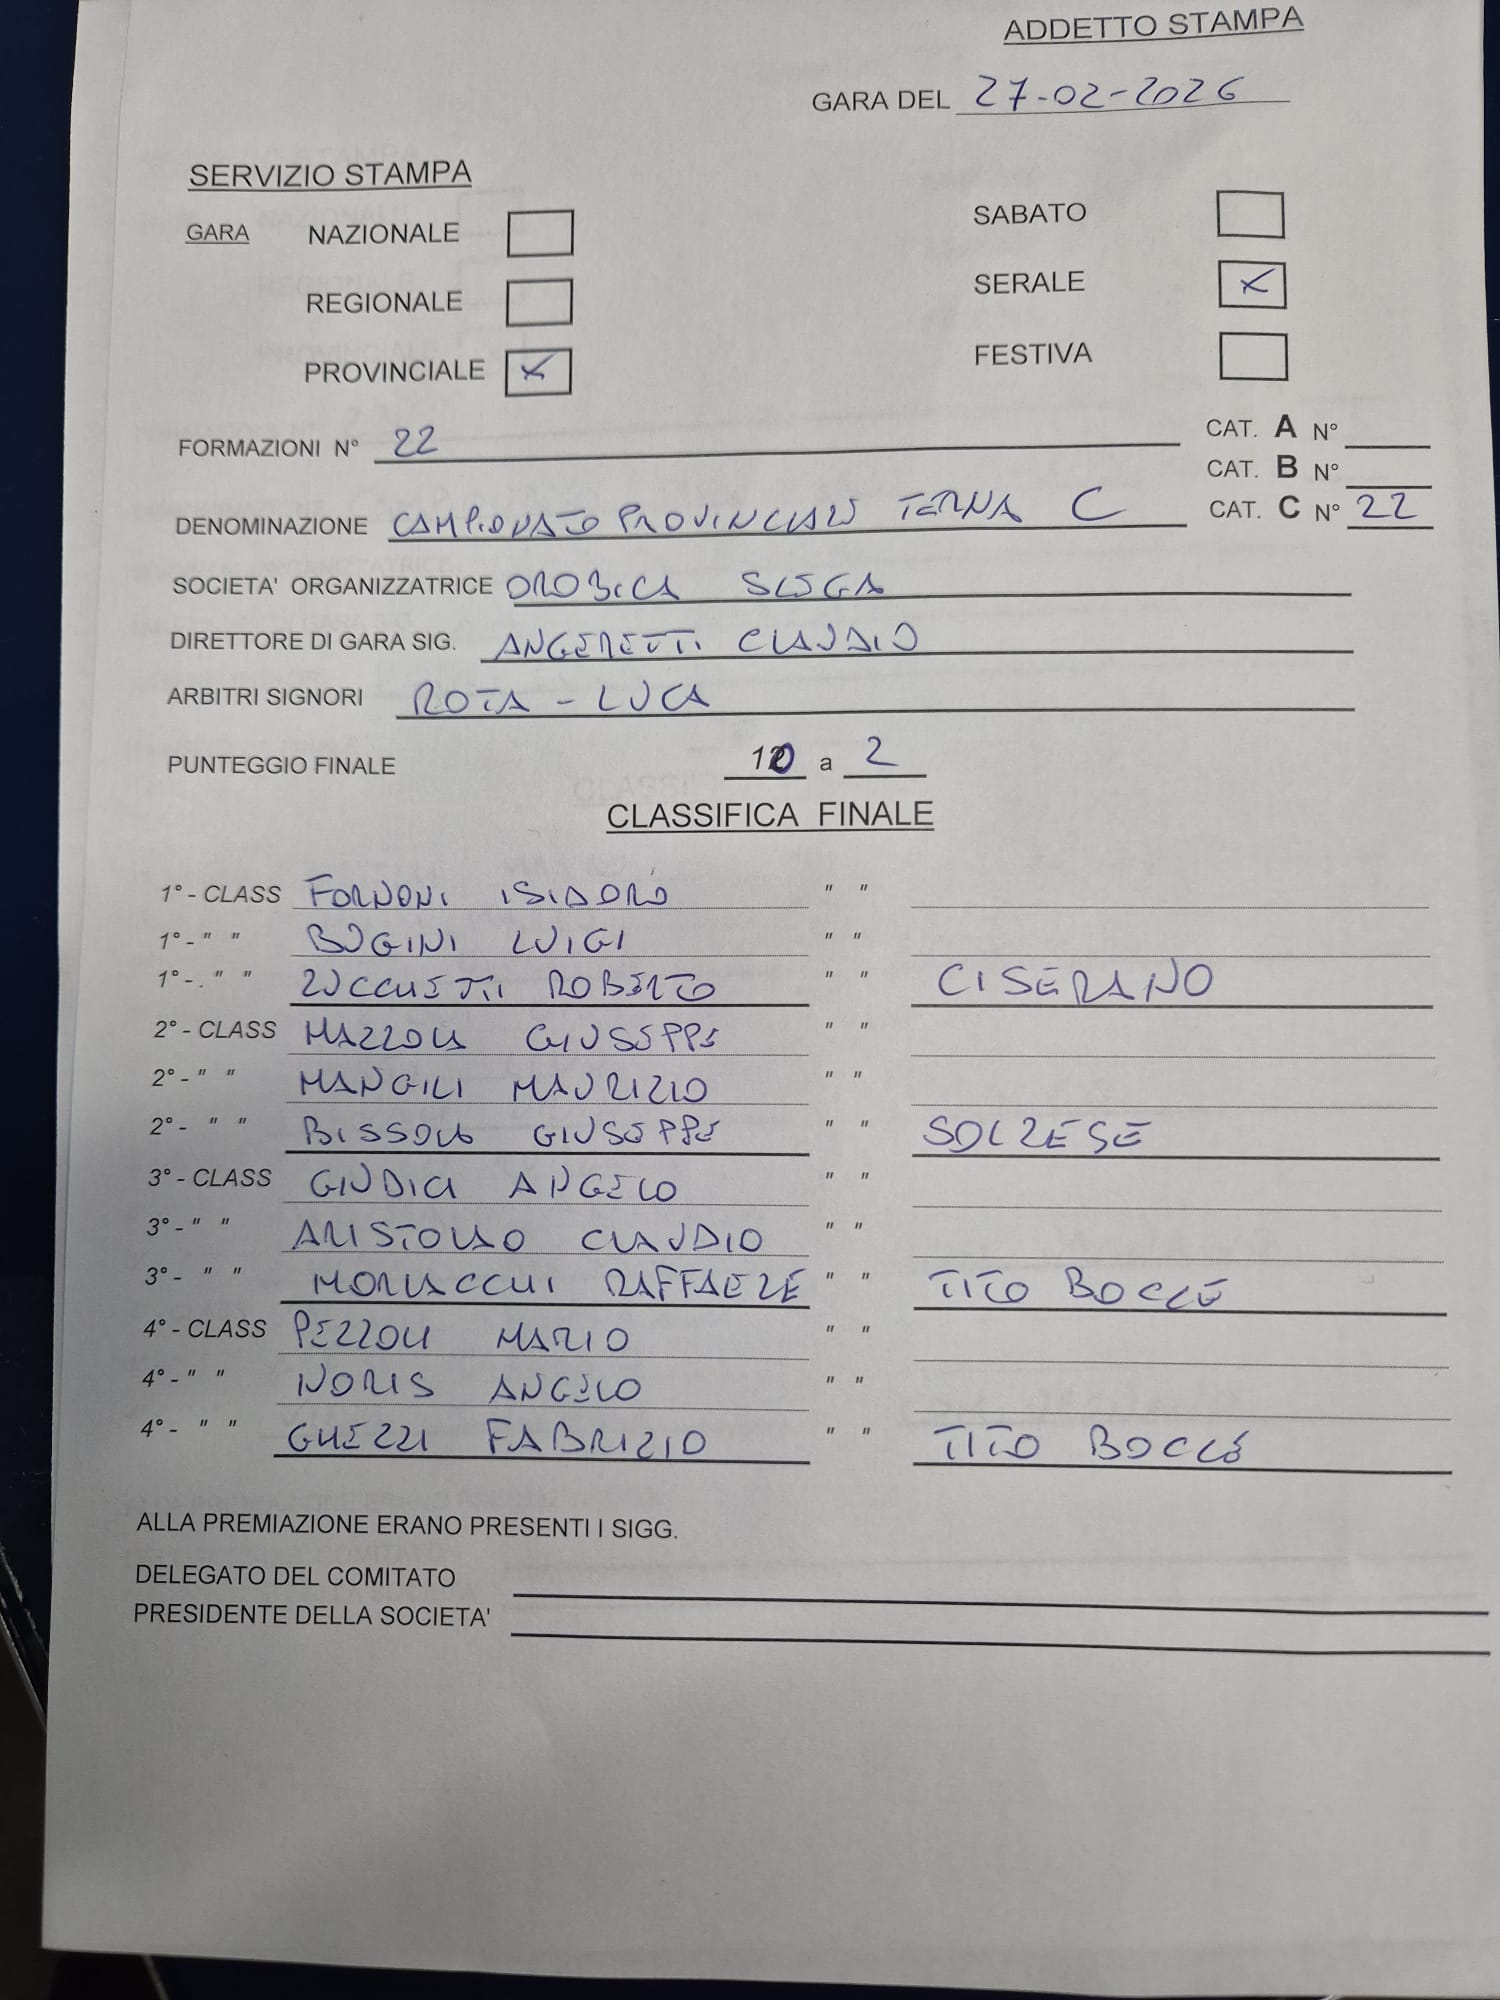 ADDETTO STAMPA
GARA DEL 27-02-2026
SERVIZIO STAMPA
GARA NAZIONALE SABATO
REGIONALE SERALE X
PROVINCIALE X FESTIVA
FORMAZIONI N° 22 CAT. A N°
CAT. B N°
DENOMINAZIONE CAMPIONATO PROVINCIALE TERNA C CAT. C N° 22
SOCIETA' ORGANIZZATRICE OROBICA SLEGA
DIRETTORE DI GARA SIG. ANGERETTI CLAUDIO
ARBITRI SIGNORI ROTA - LUCA
PUNTEGGIO FINALE 10 a 2
CLASSIFICA FINALE
1° - CLASS FORNONI ISIDORO " "
1° - " " BUGINI LUIGI " "
1° -. " " ZUCCHETTI ROBERTO " " CISERANO
2° - CLASS MAZZOLA GIUSEPPE " "
2° - " " MANGILI MAURIZIO " "
2° - " " BISSOLA GIUSEPPE " " SOLZESE
3° - CLASS GIUDICI ANGELO " "
3° - " " ARISTOLAO CLAUDIO " "
3° - " " MORLACCHI RAFFAELE " " TITO BOCCE
4° - CLASS PEZZOLI MARIO " "
4° - " " NORIS ANGELO " "
4° - " " GHEZZI FABRIZIO " " TITO BOCCE
ALLA PREMIAZIONE ERANO PRESENTI I SIGG.
DELEGATO DEL COMITATO
PRESIDENTE DELLA SOCIETA'